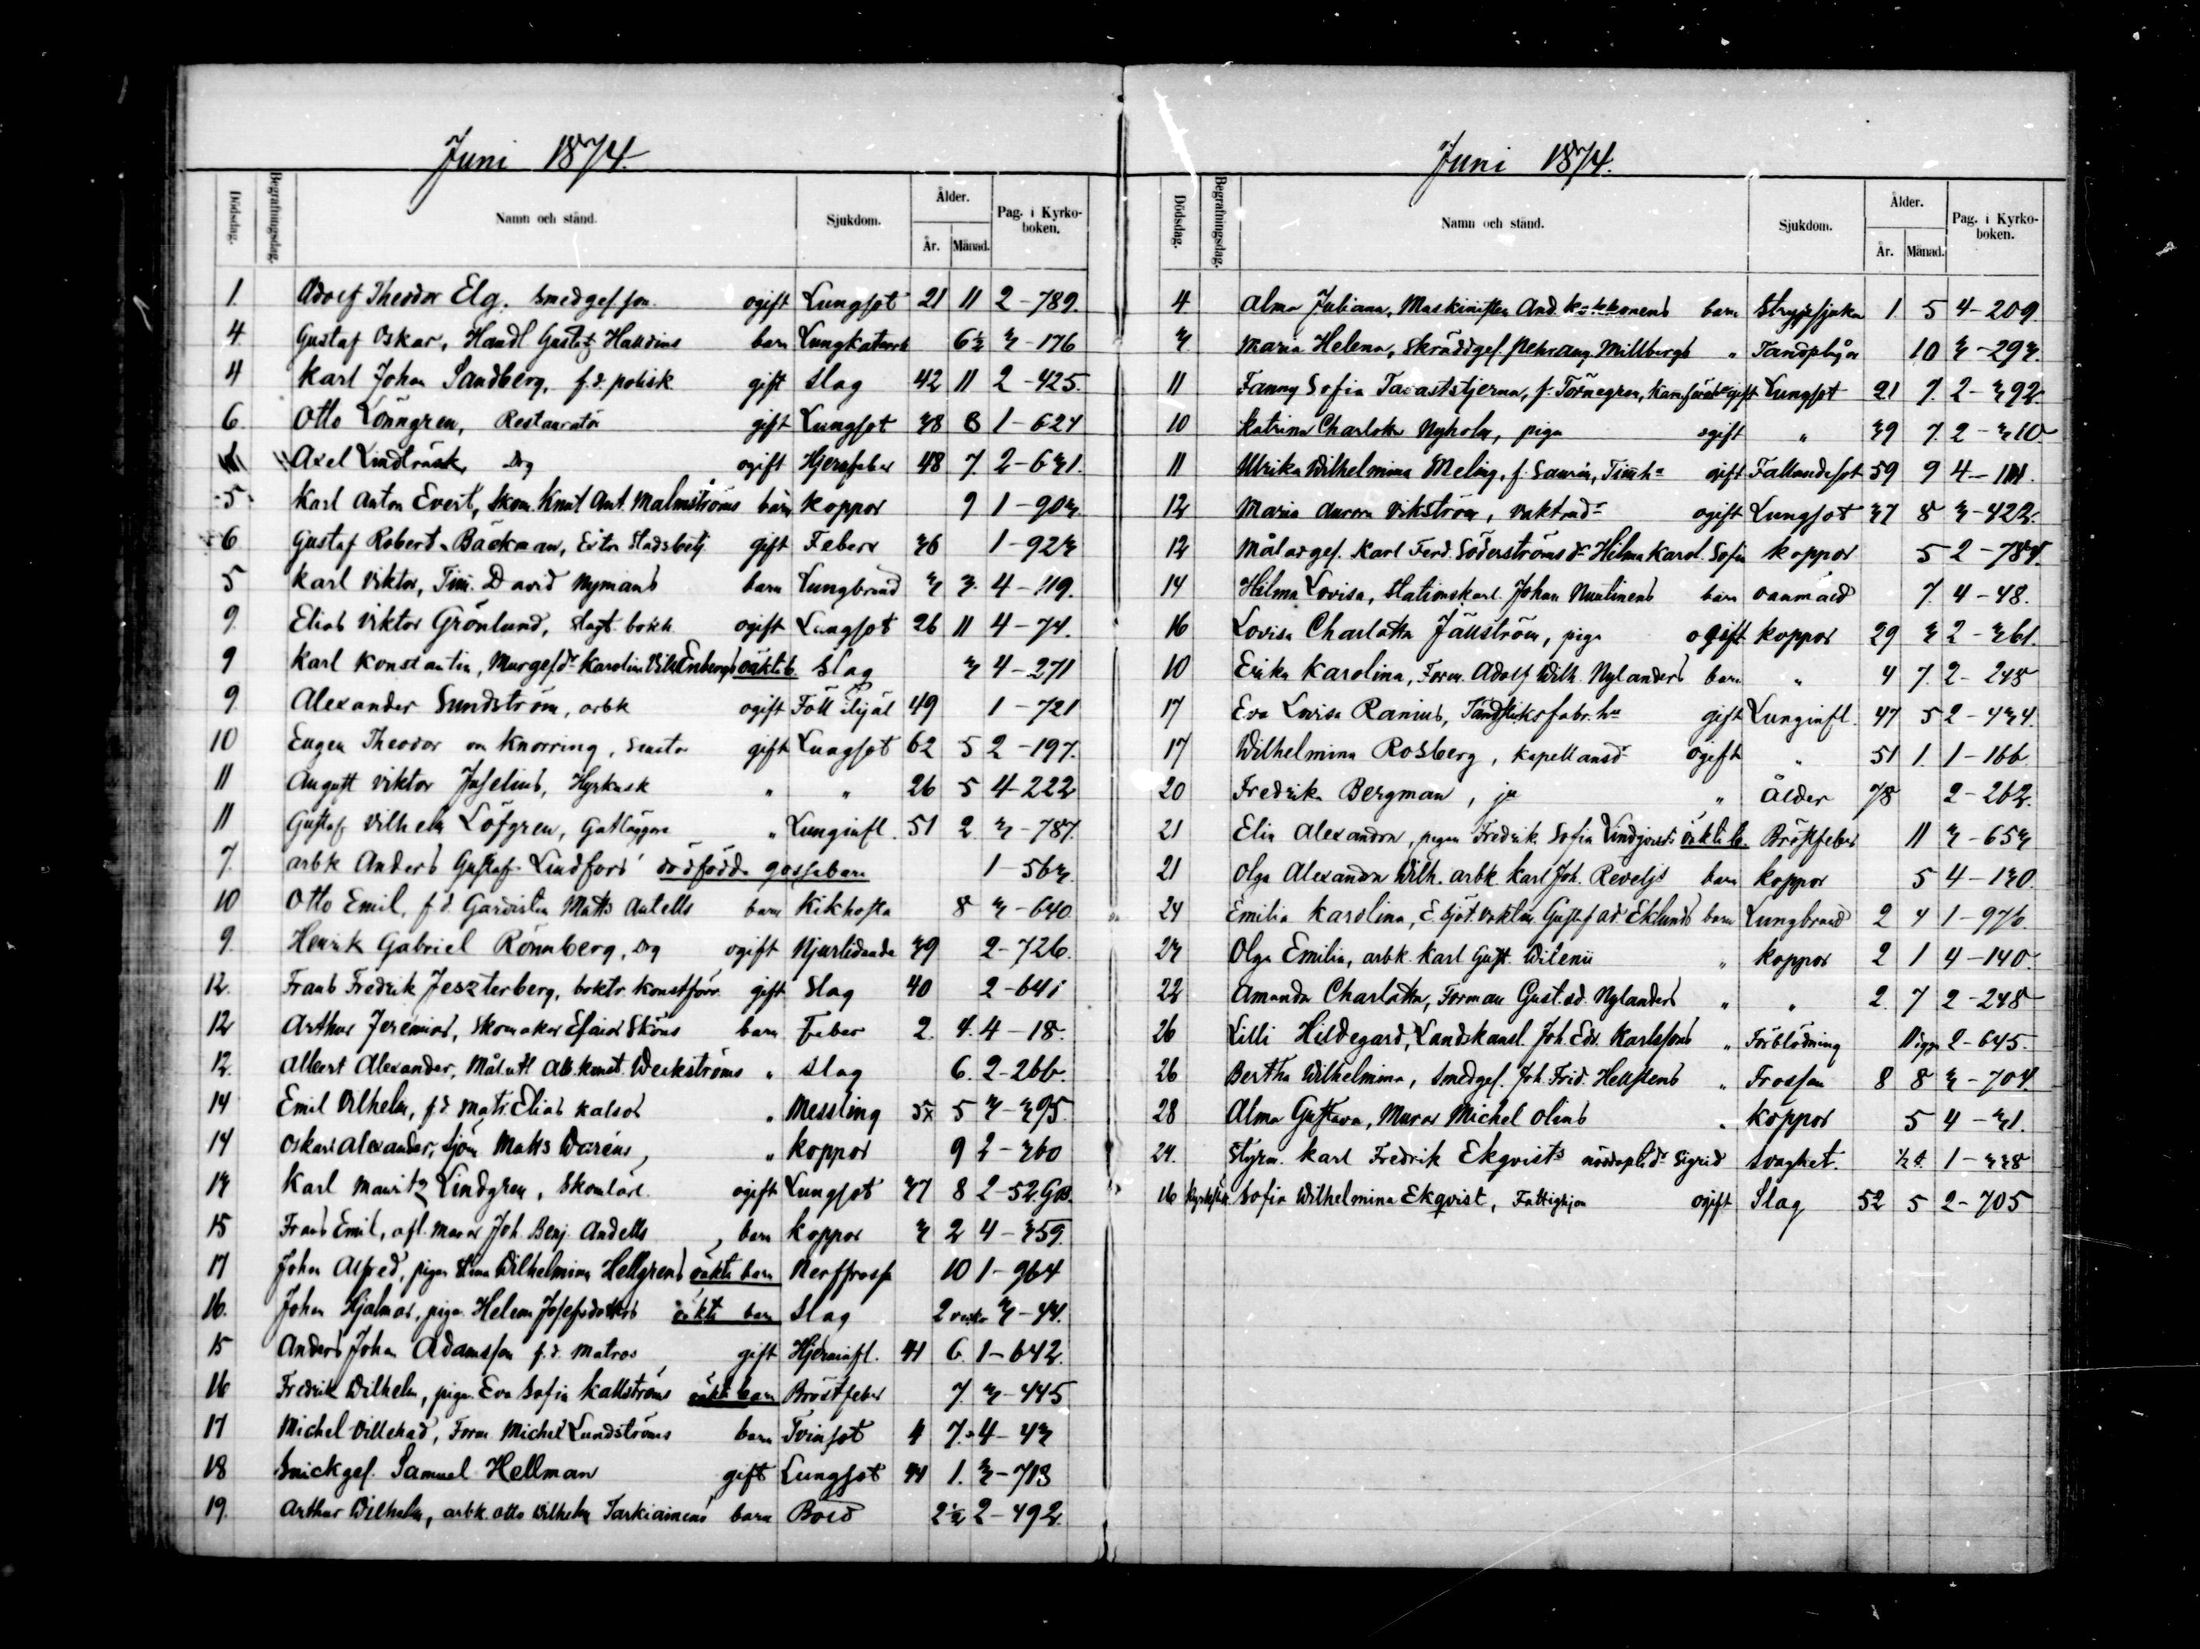 Juni 1874.
Dödsdag. Begrafningsdag. Namn och stånd. Sjukdom. Ålder. År. Månad. Pag. i Kyrkoboken.
1. Adolf Theodor Elg. smedges. son. ogift Lungsot 21 11 2-789.
4 Gustaf Oskar, Handl Gustaf barn Lungkatarrh 6½ 3-176
4 Karl Johan Sandberg, f.d. polisk gift Slag 42 11 2-425.
6. Otto Lönngren, Restauratör gift Lungsot 38 8 1-624
Axel Lindtråsk, Drg ogift 48 7 2-631.
5 Karl Anton Evert, Skom. Knut Ant. Malmströms barn koppor 9 1-903.
6 Gustaf Robert Bäckman, gift Feber 36 1-923
5 Karl Viktor, Tim. David Nymans barn Lungbrand 3 3. 4-119.
9. Elias Viktor Grönlund, ogift Lungsot 26 11 4-74.
9 Karl Konstantin, Karolin oäkta b. Slag 3 4-271
9. Alexander Sundström, arbk ogift 49 1-721
10 Eugen Theodor von Knorring, gift Lungsot 62 5 2-197.
11 August Viktor Hyrkusk " " 26 5 4-222
11 Gustaf Vilhelm Löfgren, " Lunginfl. 51 2 3-787.
7. arbk Anders Gustaf Lindfors' dödfödda gossebarn 1-563.
10 Otto Emil, f.d. Gardisten Matts Antells barn Kikhosta 8 3-640
9. Henrik Gabriel Rönnberg, Drg ogift Njurlidande 39 2-726.
12. Frans Fredrik Jeszterberg, boktr. Konstförv. gift Slag 40 2-641
12 Arthur Jeremias, Skomakar Esaias Sköns barn Feber 2. 4. 4-18.
12. Albert Alexander, Weckströms " slag 6. 2-266.
14 Emil Vilhelm, f.d. Elias " Messling 5 3-395.
14 Oskar Alexander, Sjöm Matts Waréns " koppor 9 2-360
13 Karl Mauritz Lindgren, ogift Lungsot 37 8
15 Frans Emil, afl. Murar Joh. Benj. Andells barn koppor 3 2 4-359.
17 Johan Alfred, pigan Wilhelmina Hellgrens oäkta barn 10 1-964
16. Johan Hjalmar, piga Helena Josefsdotters oäkta barn Slag 2 veckor 3-44.
15 Anders Johan Adamsson f.d. Matros gift Hjerninfl. 41 6. 1-642.
16 Fredrik Wilhelm, piga. Eva Sofia Kallströms oäkta barn Bröstfeber 7. 3-445
17 Michel Villehad, Form. Michel Lundströms barn Tvinsot 4 7. 4-43
18 Snickges. Samuel Hellman gift Lungsot 41 1. 3-713
19. Arthur Wilhelm, arbk. Otto Wilhelm Tarkiainens barn 2½ 2-492.
Juni 1874.
Dödsdag. Begrafningsdag. Namn och stånd. Sjukdom. Ålder. År. Månad. Pag. i Kyrkoboken.
4 Alma Juliana, Maskinisten And. barn Strypsjuka 1. 5 4-209.
3 Maria Helena, Skräddges. Pehr Aug. Millbergs " Tandplågor 10 3-293.
11 Fanny Sofia Tavaststjerna, f. Törnegren, gift Lungsot 21 7. 2-392.
10 Katrina Charlotta Nyholm, piga ogift " 39 7. 2-310
11 Ulrika Wilhelmina Meling, f. gift Fallandesot 59 9 4-111.
12 Maria Aurora Vikström, ogift Lungsot 37 8 3-422.
12 Målareges. Karl Ferd. Söderströms dr Hilma Karol. Sofia koppor 5 2-784.
14 Hilma Lovisa, Stationskarl. Johan Nuutinens barn oanmäld 7. 4-48.
16 Lovisa Charlotta Jällström, piga ogift koppor 29 3 2-361.
10 Erika Karolina, Form. Adolf Wilh. Nylanders barn " 4 7. 2-248
17 Eva Lovisa Ranius, Tändsticksfabr. hu gift Lunginfl. 47 5 2-434.
17 Wilhelmina Rosberg, kapellansdr ogift " 51 1. 1-166
20 Fredrika Bergman, " Ålder 78 2-262.
21 Elin Alexandra, pigan Fredrik. Sofia oäkta b. Bröstfeber 11 3-653
21 Olga Alexandra Wilh. arbk. Karl Joh. Reveljs barn koppor 5 4-130.
24 Emilia Karolina, Gustaf Ad. Eklunds barn Lungbrand 2 4 1-976.
23 Olga Emilia, arbk. Karl Gust. Wilenii " koppor 2 1 4-140.
22 Amanda Charlotta, Forman Gust. Ad. Nylanders " " 2. 7 2-248
26 Lilli Hildegard, Landskansl. Joh. Edv. Karlssons " Förblödning 2-645.
26 Bertha Wilhelmina, Smedges. Joh. Frid. Hellstens " Frossan 8 8 3-704
28 Alma Gustava, Murar Michel Olins " koppor 5 4-31.
24. Styrm. Karl Fredrik Ekqvists nöddöpta dr Sigrid svaghet. 1-338
16 Sofia Wilhelmina Ekqvist, Fattighjon ogift Slag 52 5 2-705